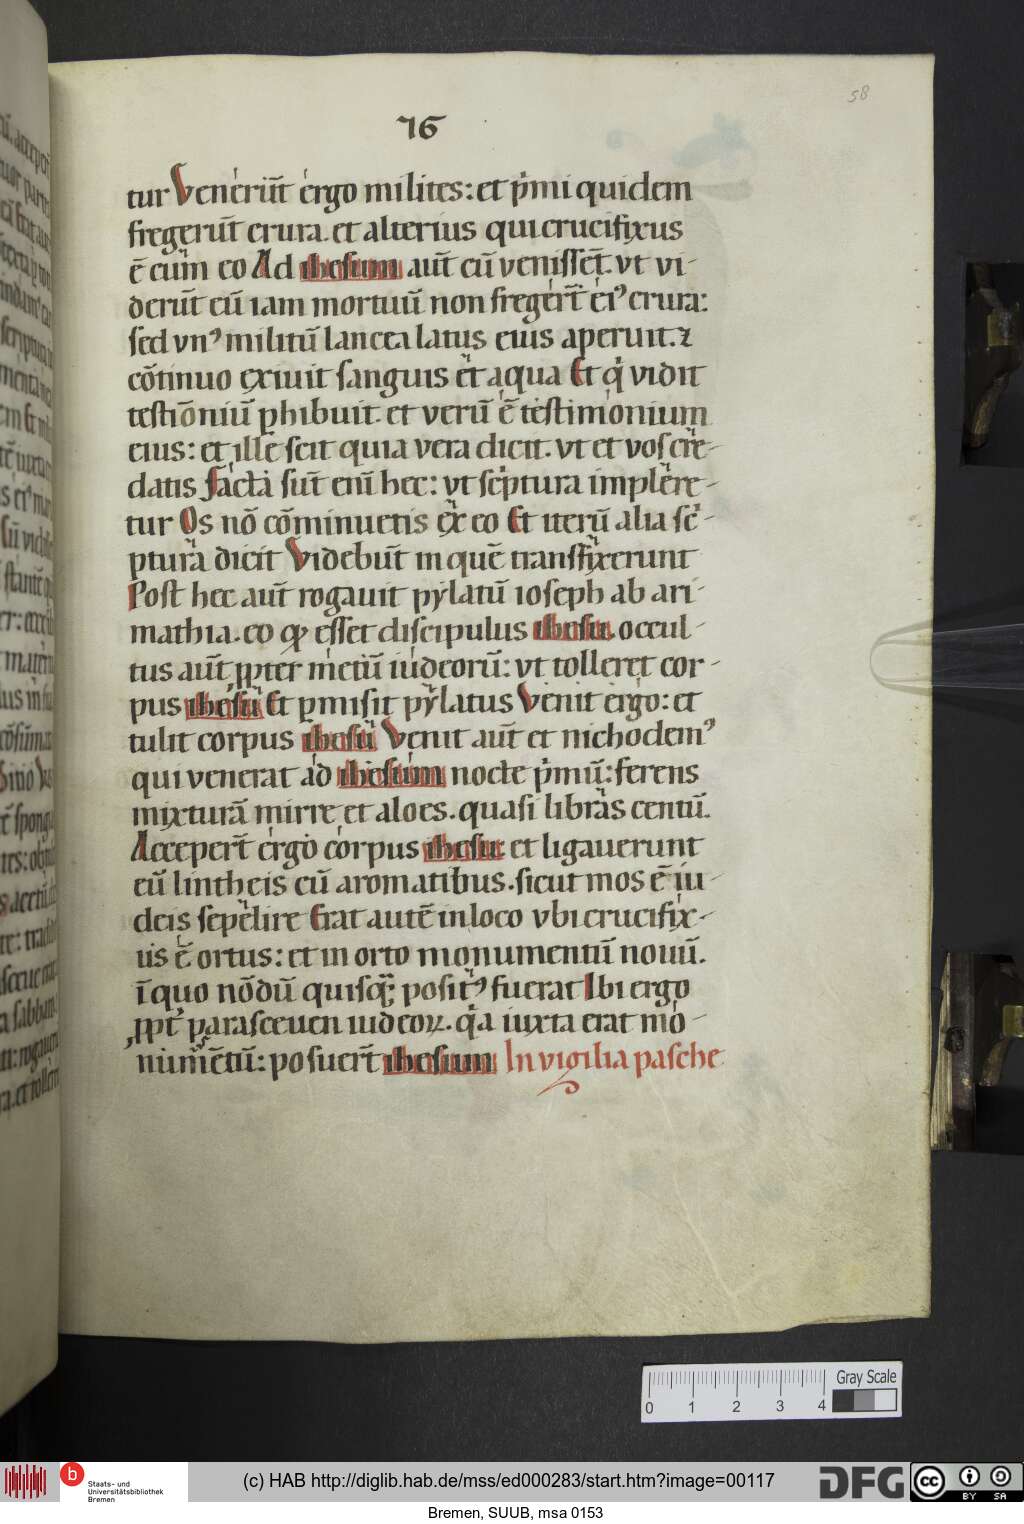 58
76
tur Venerūt ergo milites: et p̓mi quidem
fregerūt crura. et alterius qui crucifixus
ē cum eo Ad ihesum aūt cū venissēt. vt vi-
derūt eū iam mortuū non fregerт̄ eiꝰ crura:
sed vnꝰ militū lancea latus eius aperuit. ⁊
cōtinuo exiuit sanguis et aqua Et q̓ vidit
testiōniū phibuit. et verū ē testimonium
eius: et ille scit quia vera dicit. vt et vos cre-
datis Facta sūt enī hec: vt sc̓ptura implere-
tur Os nō cōminuetis ex eo Et iterū alia sc̓-
ptura dicit Videbūt in quē transfixerunt
Post hec aūt rogauit pylatū ioseph ab ari-
mathia. eo ꝙ esset discipulus ihesu. occul-
tus aūt ꝓpter metū iudeorū: vt tolleret cor-
pus ihesū Et pmisit pylatus Venit ergo: et
tulit corpus ihesū Venit aūt et nichodemꝰ
qui venerat ad ihesum nocte p̓mū: ferens
mixturā mirre et aloes. quasi libras centū.
Accepert̄ ergo corpus ihesu: et ligauerunt
eū lintheis cū aromatibus. sicut mos ē iu-
deis sepelire Erat autē in loco vbi crucifix-
us ē ortus: et in orto monumentū nouū.
ī quo nōdū quisq̄ꝫ positꝰ fuerat Ibi ergo
ꝓpt̓ parasceuen iudeoꝝ. q̓a iuxta erat mo-
numētū: posuert̄ ihesum In vigilia pasche
Gray Scale
0 1 2 3 4
b
Staats- und
Universitätsbibliothek
Bremen
(c) HAB http://diglib.hab.de/mss/ed000283/start.htm?image=00117
DFG
cc BY SA
Bremen, SUUB, msa 0153